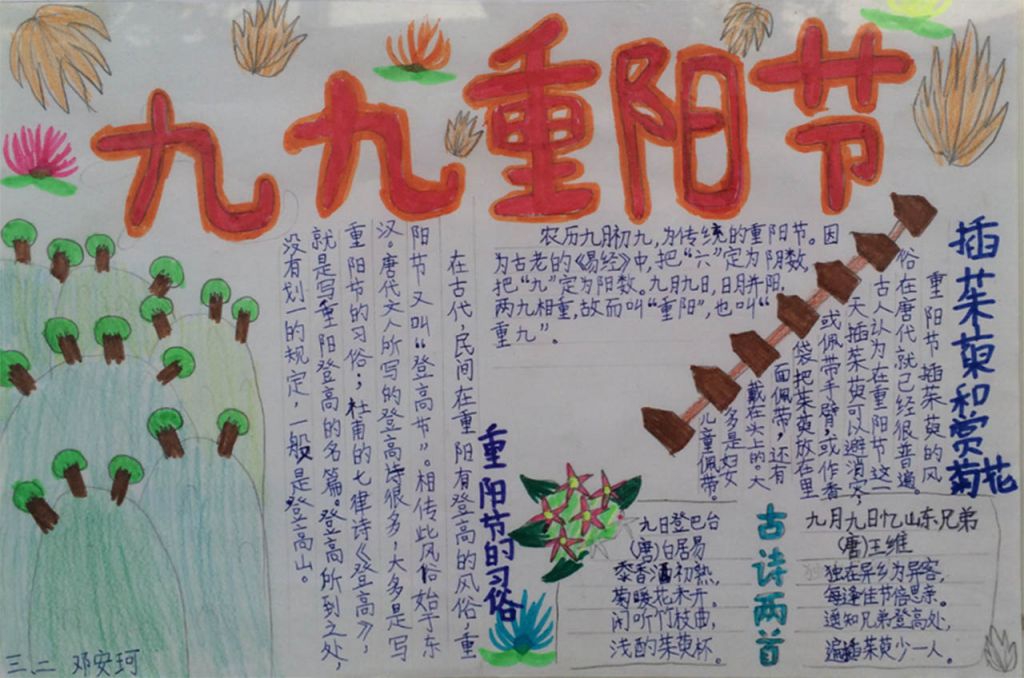 九九重阳节
农历九月初九，为传统的重阳节。因
为古老的《易经》中，把“六”定为阴数，
把“九”定为阳数。九月九日，日月并阳，
两九相重，故而叫“重阳”，也叫“
重九”。
插茱萸和赏菊花
重阳节插茱萸的风
俗在唐代就已经很普遍。
古人认为在重阳节这一
天插茱萸可以避消灾；
或佩带手臂，或作香
袋把茱萸放在里
面佩带，还有
戴在头上的。大
多是妇女
儿童佩带。
重阳节的习俗
在古代，民间在重阳有登高的风俗，重
阳节又叫“登高节”。相传此风俗始于东
汉。唐代文人所写的登高诗很多，大多是写
重阳节的习俗；杜甫的七律诗《登高》，
就是写重阳登高的名篇。登高所到之处，
没有划一的规定，一般是登高山。
古诗两首
九月九日忆山东兄弟
(唐)王维
独在异乡为异客，
每逢佳节倍思亲。
遥知兄弟登高处，
遍插茱萸少一人。
九日登巴台
(唐)白居易
黍香酒初熟，
菊暖花未开。
闲听竹枝曲，
浅酌茱萸杯。
三、二 邓安珂